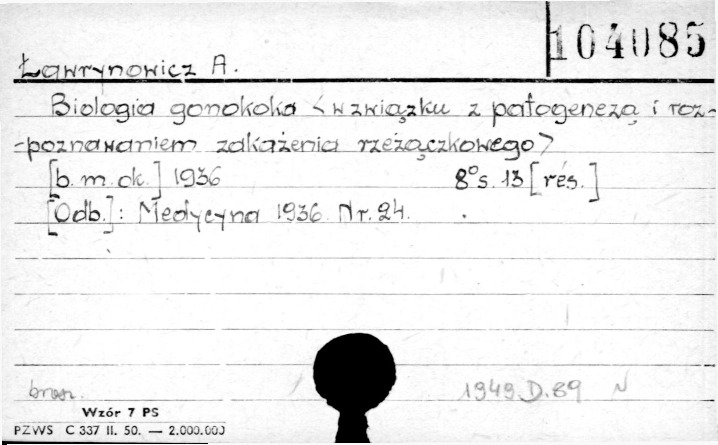 104085
Ławrynowicz A.
Biologia gonokoka <w związku z patogenezą i roz-
-poznawaniem zakażenia rzeżączkowego>
[b. m. dr.] 1936 8° s. 13 [rés.]
[Odb.]: Medycyna 1936 Nr. 24.
brosz. 1949.D.89 N
Wzór 7 PS
PZWS C 337 II. 50. — 2.000.000